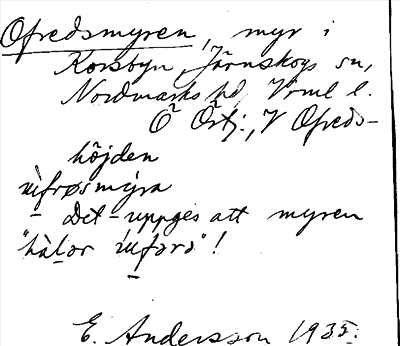 Ofredsmyren, myr i
Korsbyn, Järnskogs sn,
Nordmarks hd, Vrml l.
Ö Örtj., V Ofreds-
höjden
ùfrøsmýra
Det uppges att myren
"hàlar ùfərə"!
E. Andersson 1935.